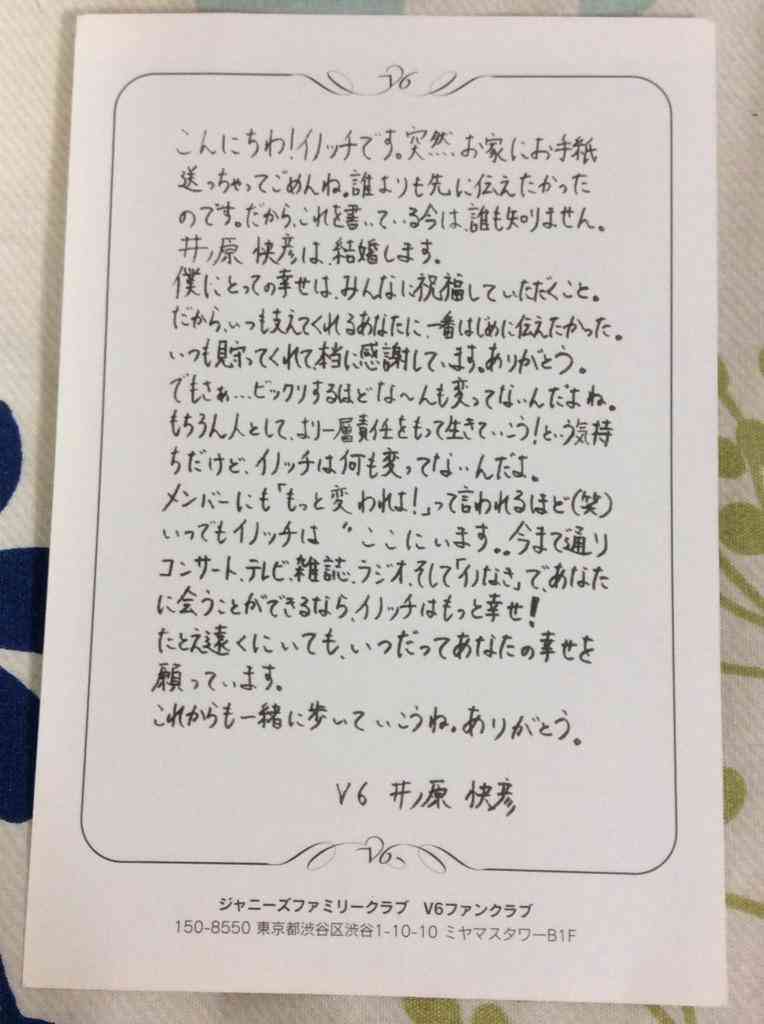 V6
こんにちわ!イノッチです。突然、お家にお手紙
送っちゃってごめんね。誰よりも先に伝えたかった
のです。だから、これを書いている今は、誰も知りません。
井ノ原 快彦は、結婚します。
僕にとっての幸せは、みんなに祝福していただくこと。
だから、いつも支えてくれるあなたに、一番はじめに伝えたかった。
いつも見守ってくれて本当に感謝しています。ありがとう。
でもさぁ…ビックリするほどな〜んも変ってないんだよね。
もちろん人として、より一層責任をもって生きていこう!という気持
ちだけど、イノッチは何も変ってないんだよ。
メンバーにも「もっと変われよ!」って言われるほど(笑)
いつでもイノッチは 〝ここにいます〟。今まで通り
コンサート、テレビ、雑誌、ラジオ、そして「イノなき」で、あなた
に会うことができるなら、イノッチはもっと幸せ!
たとえ遠くにいても、いつだってあなたの幸せを
願っています。
これからも一緒に歩いていこうね。ありがとう。
V6 井ノ原 快彦
V6
ジャニーズファミリークラブ V6ファンクラブ
150-8550 東京都渋谷区渋谷1-10-10 ミヤマスタワーB1F